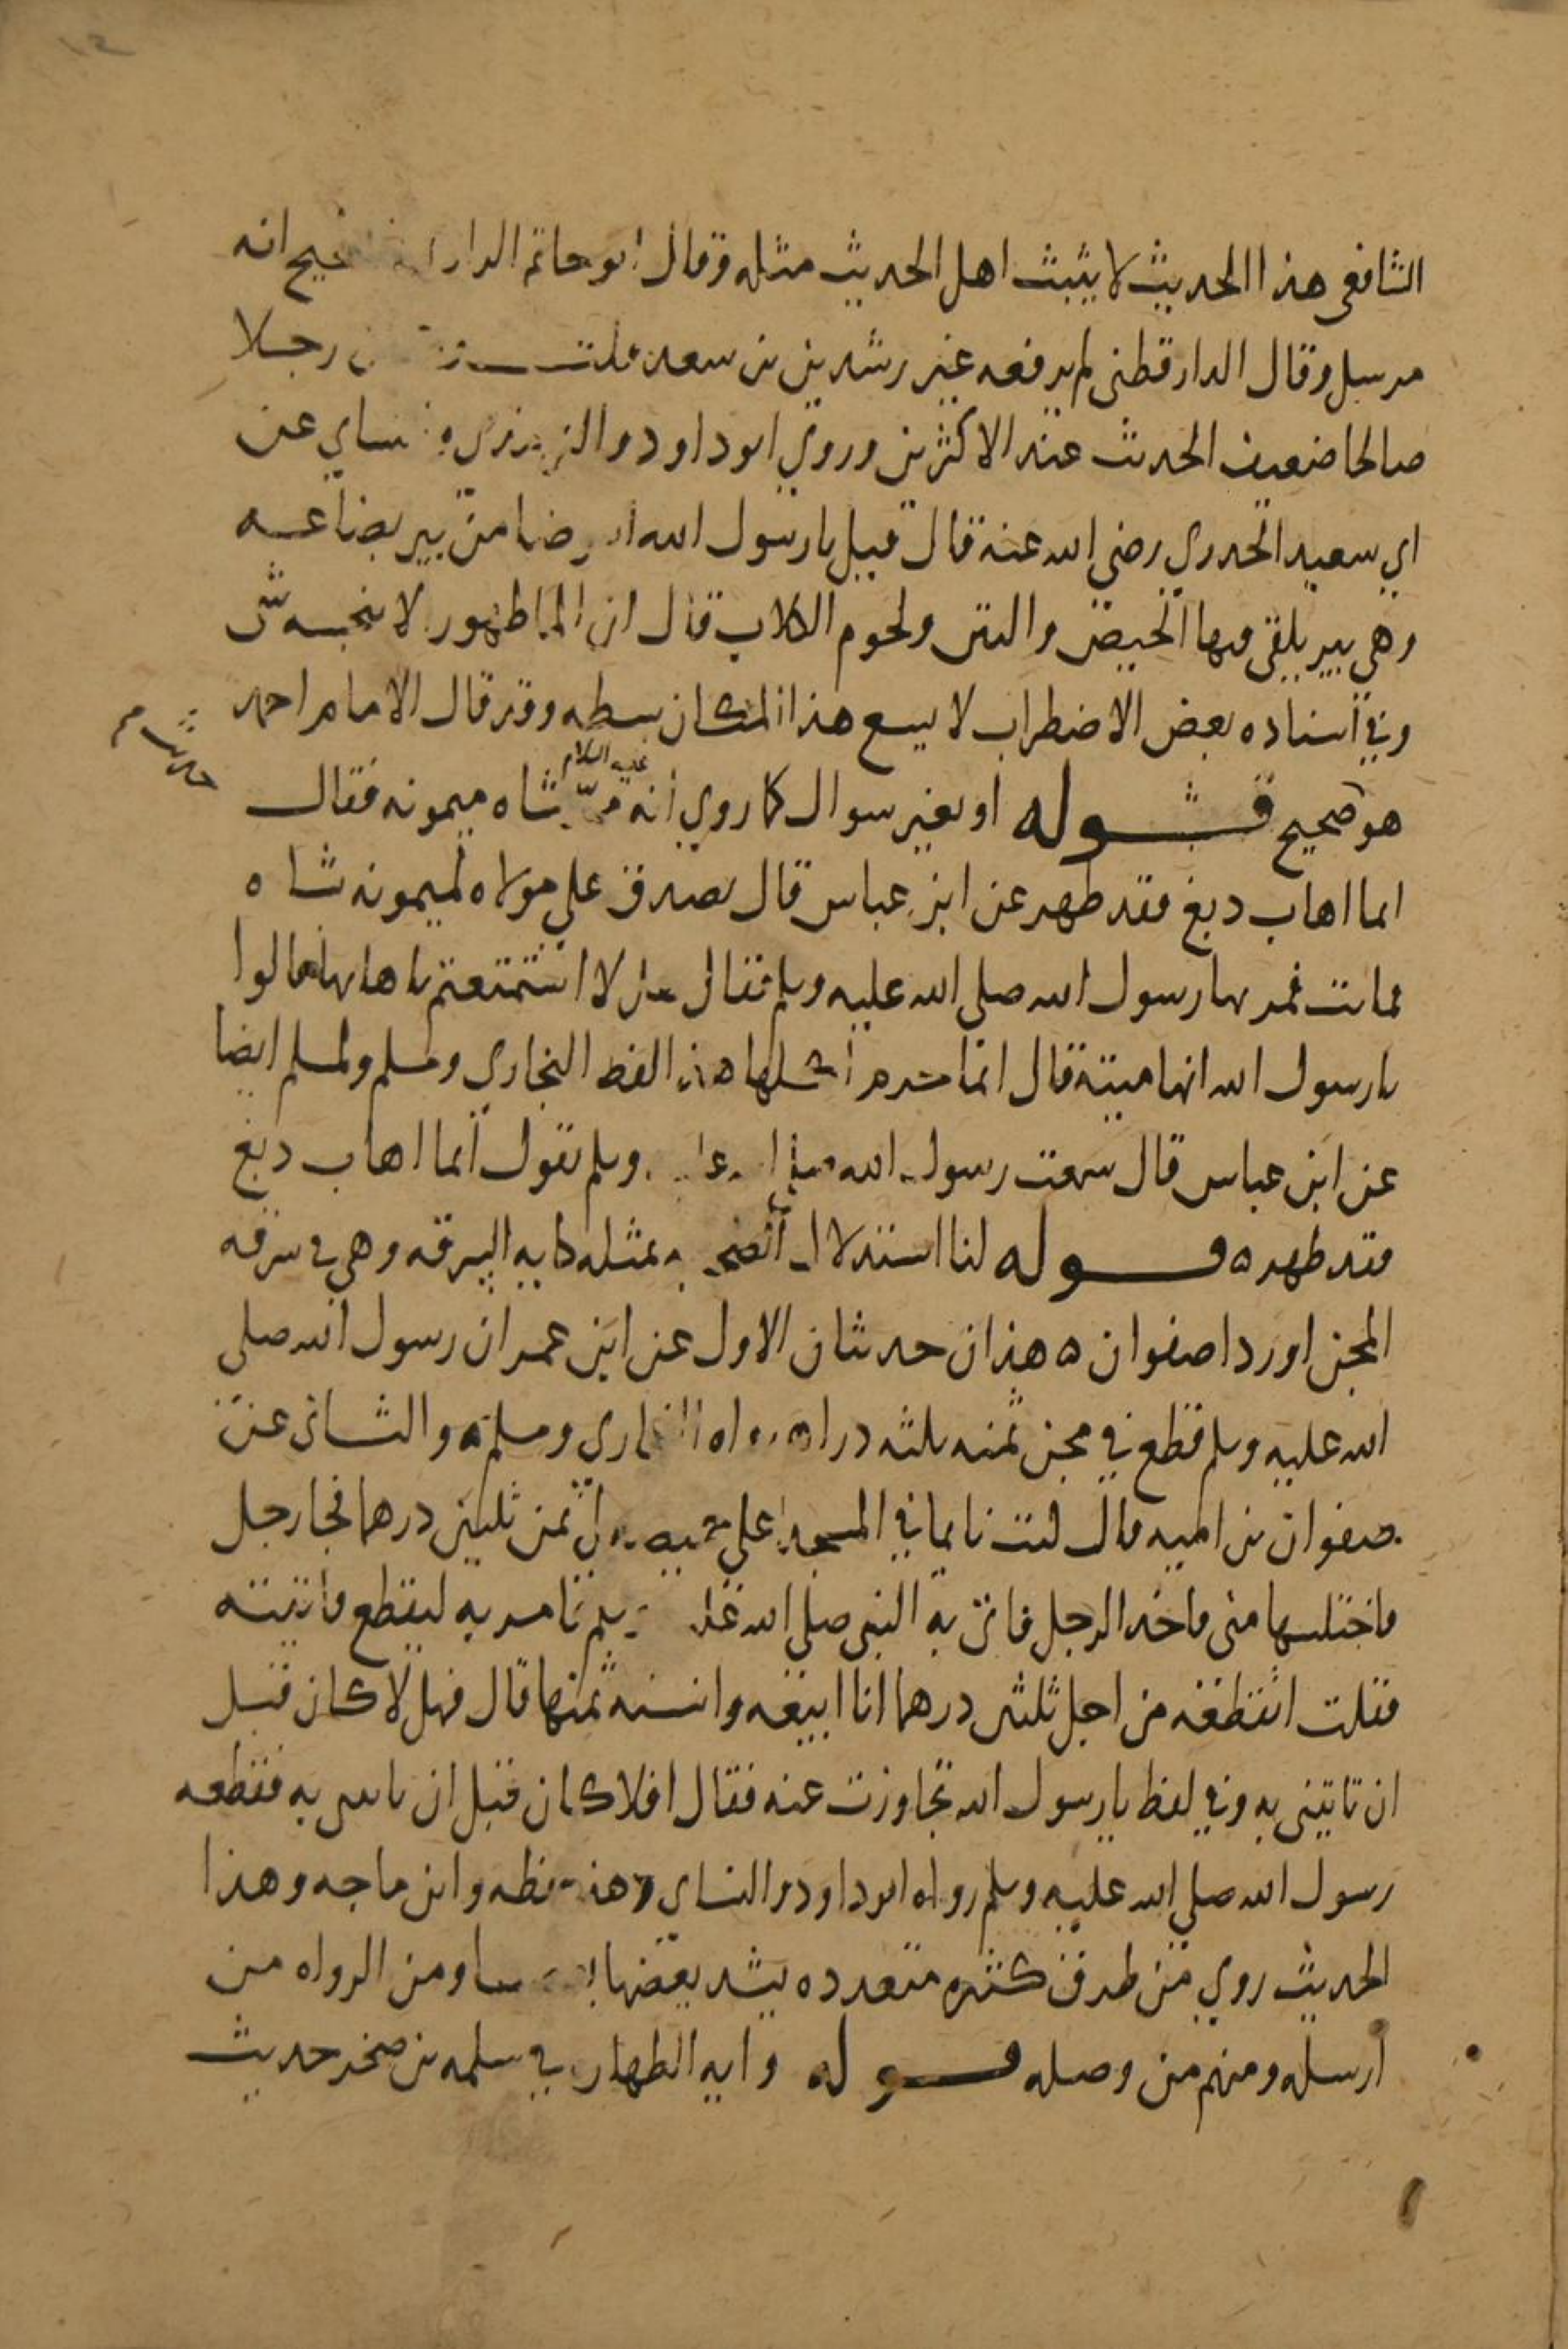 الشافعي هذا الحديث لا يثبت اهل الحديث مثله وقال ابو حاتم الرازي الصحيح انه
مرسل وقال الدارقطني لم يرفعه غير رشدين بن سعد قلت رجلا
صالحا ضعيف الحديث عند الاكثرين وروي ابو داود والترمذي والنساي عن
ابي سعيد الخدري رضي الله عنه قال قيل يا رسول الله اتتوضا من بير بضاعه
وهي بير يلقى فيها الحيض والنتن ولحوم الكلاب فقال ان الما طهور لا ينجسه شي
وفي اسناده بعض الاضطراب لا يسع هذا المكان بسطه وقد قال الامام احمد
هو صحيح قوله او بغير سوال كما روي انه عليه السلام مر بشاه ميمونه فقال
ايما اهاب دبغ فقد طهر عن ابن عباس قال تصدق علي مولاه لميمونه بشاه
فماتت فمر بها رسول الله صلى الله عليه وسلم فقال هل لا استمتعتم باهابها قالوا
يا رسول الله انها ميتة قال انما حرم اكلها هذا لفظ البخاري ومسلم ولمسلم ايضا
عن ابن عباس قال سمعت رسول الله صلى الله عليه وسلم يقول ايما اهاب دبغ
فقد طهر ه قوله لنا استدلال الصحابه بمثله كايه السرقه وهي في سرقه
المجن او ردا صفوان ه هذان حديثان الاول عن ابن عمر ان رسول الله صلى
الله عليه وسلم قطع في مجن ثمنه ثلثه دراهم رواه البخاري ومسلم ه والثاني عن
صفوان بن اميه قال كنت نايما في المسجد على خميصه لي ثمن ثلثين درهما فجا رجل
فاختلسها مني فاخذ الرجل فاتي به النبي صلى الله عليه وسلم فامر به ليقطع فاتيته
فقلت اتقطعه من اجل ثلثين درهما انا ابيعه وانسئه ثمنها قال فهل لا كان قبل
ان تاتيني به وفي لفظ يا رسول الله تجاوزت عنه فقال افلا كان قبل ان تاتيني به فقطعه
رسول الله صلى الله عليه وسلم رواه ابو داود والنساي وهذا لفظه وابن ماجه وهذا
الحديث روي من طرق كثيره متعدده يشد بعضها بعضا ومن الرواه من
ارسله ومنهم من وصله قوله وايه الظهار في سلمه بن صخر حديث